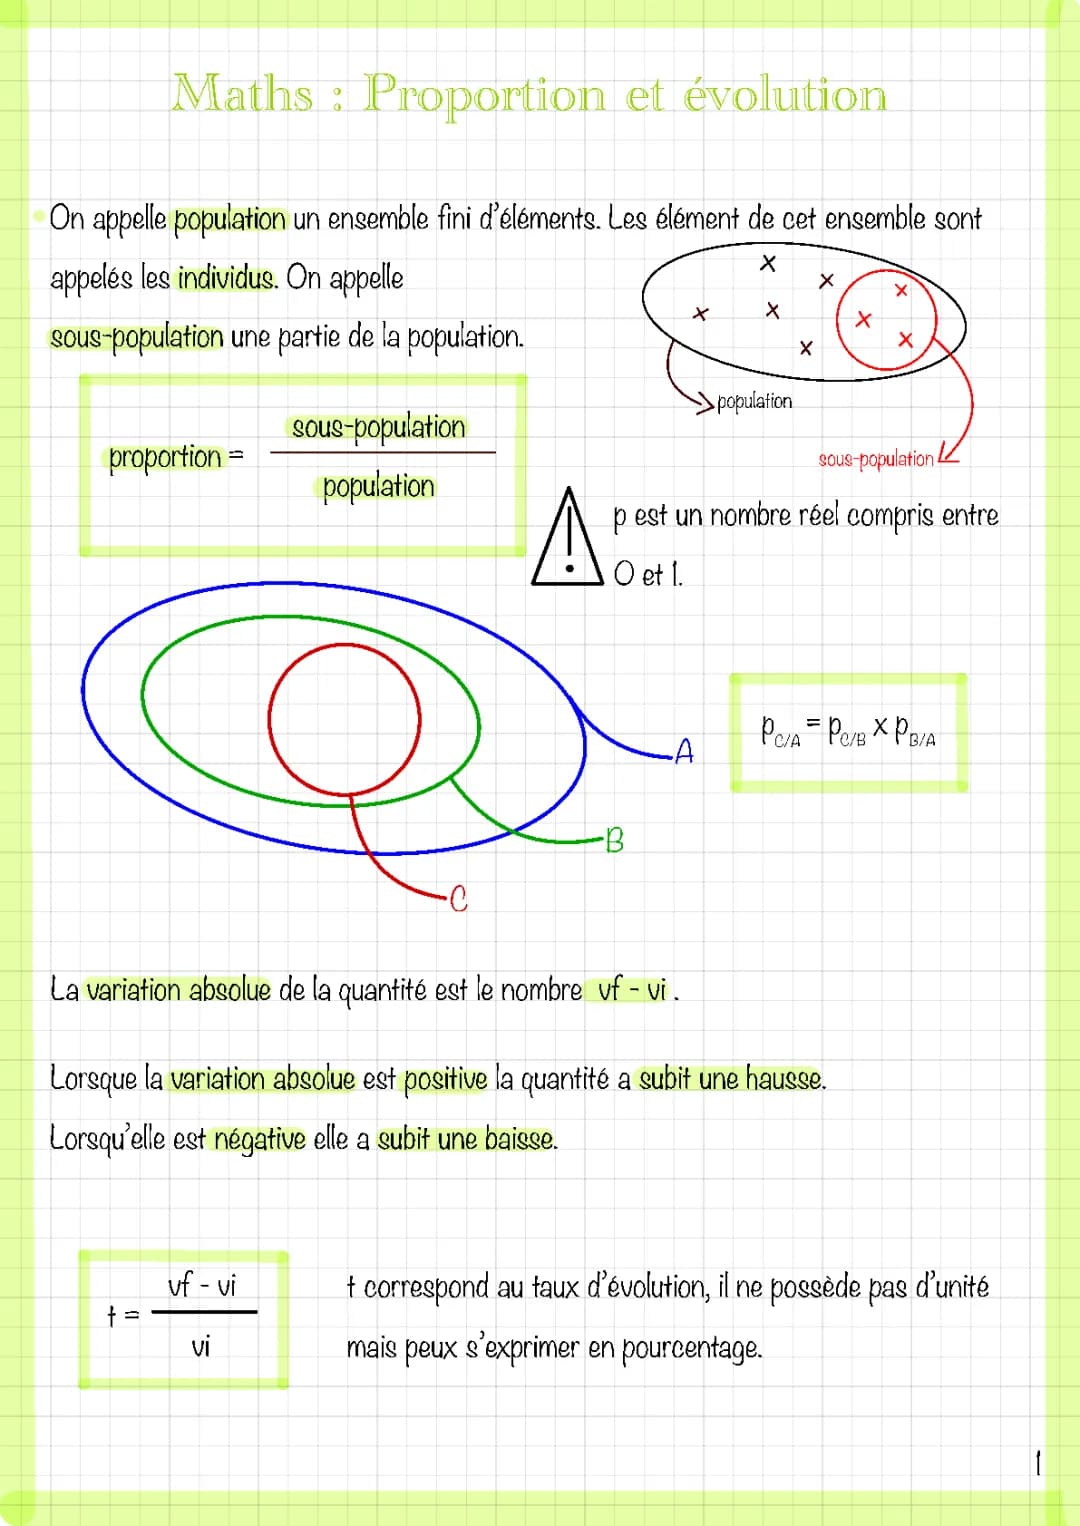 Maths : Proportion et évolution
On appelle population un ensemble fini d'éléments. Les élément de cet ensemble sont
appelés les individus. On appelle
sous-population une partie de la population.
population
sous-population
proportion = sous-population
population
p est un nombre réel compris entre
0 et 1.
A
B
C
P C/A = P C/B x P B/A
La variation absolue de la quantité est le nombre vf - vi.
Lorsque la variation absolue est positive la quantité a subit une hausse.
Lorsqu'elle est négative elle a subit une baisse.
t = vf - vi
vi
t correspond au taux d'évolution, il ne possède pas d'unité
mais peux s'exprimer en pourcentage.
1